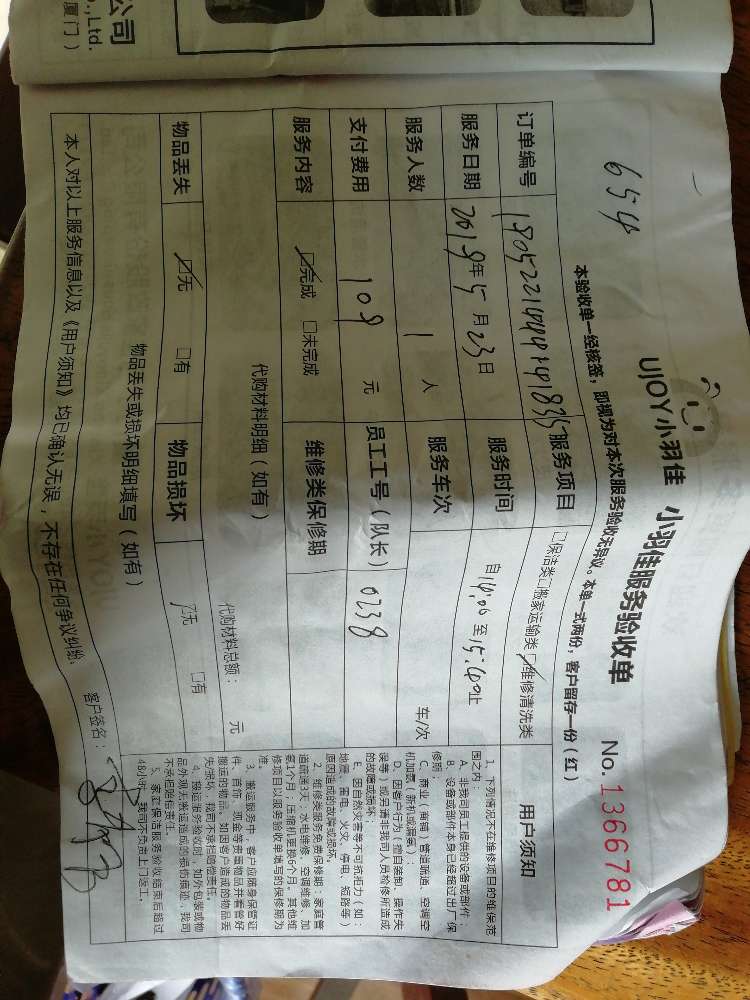 公司
.,Ltd.
厦门）
654
UJOY小羽佳 小羽佳服务验收单
No. 1366781
本验收单一经核签，即视为对本次服务验收无异议。本单一式两份，客户留存一份（红）
订单编号
服务项目 □保洁类□搬家运输类☑维修清洗类
服务日期 2018年5月23日
服务时间
服务人数 1 人
服务车次 车/次
支付费用 108 元
员工工号（队长） 0238
服务内容 ☑完成 □未完成
维修类保修期
代购材料明细（如有）
代购材料总额： 元
物品丢失 ☑无 □有
物品损坏 ☑无 □有
物品丢失或损坏明细填写（如有）
本人对以上服务信息以及《用户须知》均已确认无误，不存在任何争议纠纷。
客户签名：
用户须知
1、下列情况不在维修项目的维保范
围之内：
A、非我司员工提供的设备或部件；
B、设备或部件本身已经超过出厂保
修期
C、商业（商铺）管道疏通、空调空
机加氟（新机或漏氟）；
D、因客户行为（擅自装卸、操作失
误等）或另请非我司人员检修所造成
的故障或损坏；
E、因自然灾害等不可抗拒力（如：
地震、雷电、火灾、停电、短路等）
原因造成的故障或损坏。
2、维修类服务免费保修期：家庭管
道疏通3天；水电维修、空调维修、加
氨1个月，压缩机更换6个月。其他维
修项目以服务验收单填写的保修期为
准。
3、搬运服务中，客户应随身保管证
件、首饰、现金等贵重物品并看管好
搬运的物品，如因客户造成的物品丢
失/损坏，我司不承担赔偿责任。
4、搬运服务验收后，如外包装或物
品外观无搬运造成的损伤痕迹，我司
不承担赔偿责任。
5、家庭保洁服务验收结束后超过
48小时，我司不负责上门返工。